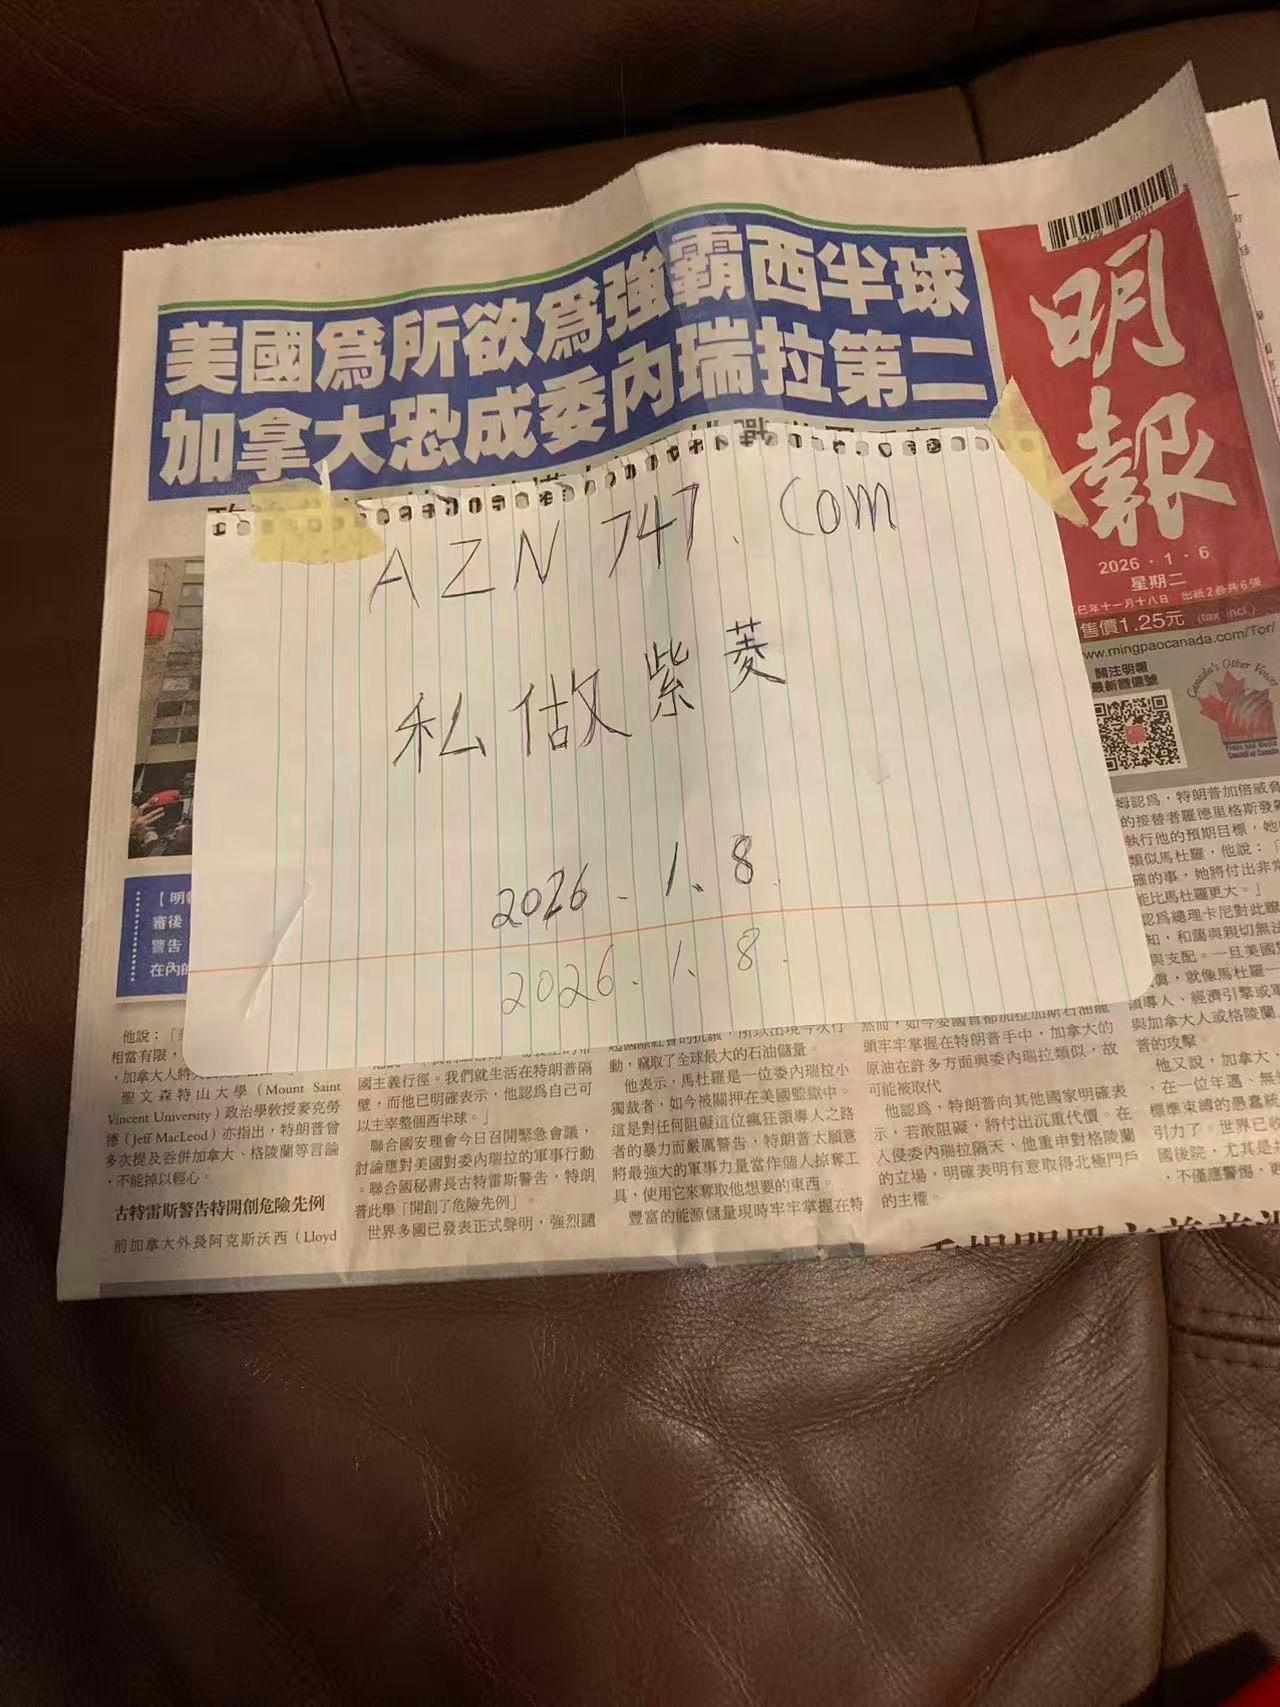 美國爲所欲爲強霸西半球
加拿大恐成委內瑞拉第二
明報
2026．1．6
星期二
乙巳年十一月十八日 出紙2疊共6張
售價1.25元 (tax incl.)
www.mingpaocanada.com/Tor/
關注明報
最新微信號
Canada's Other Voices
Press and Media
Council of Canada
AZN 747. Com
私做紫菱
2026. 1. 8.
2026. 1. 8.
【明
審後
警告
在內的
他說：「
相當有限，
，加拿大人將
聖文森特山大學（Mount Saint
Vincent University）政治學教授麥克勞
德（Jeff MacLeod）亦指出，特朗普曾
多次提及吞併加拿大、格陵蘭等言論
，不能掉以輕心。
古特雷斯警告特開創危險先例
前加拿大外長阿克斯沃西（Lloyd
國主義行徑。我們就生活在特朗普隔
壁，而他已明確表示，他認爲自己可
以主宰整個西半球。」
聯合國安理會今日召開緊急會議，
討論應對美國對委內瑞拉的軍事行動
。聯合國秘書長古特雷斯警告，特朗
普此舉「開創了危險先例」。
世界多國已發表正式聲明，強烈譴
動，竊取了全球最大的石油儲量。
他表示，馬杜羅是一位委內瑞拉小
獨裁者，如今被關押在美國監獄中。
這是對任何阻礙這位瘋狂領導人之路
者的暴力而嚴厲警告，特朗普太願意
將最強大的軍事力量當作個人掠奪工
具，使用它來奪取他想要的東西。
豐富的能源儲量現時牢牢掌握在特
然而，如今委國首都加拉加斯石油龍
頭牢牢掌握在特朗普手中，加拿大的
原油在許多方面與委內瑞拉類似，故
可能被取代
他認爲，特朗普向其他國家明確表
示，若敢阻礙，將付出沉重代價。在
入侵委內瑞拉隔天，他重申對格陵蘭
的立場，明確表明有意取得北極門戶
的主權。
姆認爲，特朗普加倍威脅
的接替者羅德里格斯發
執行他的預期目標，她
類似馬杜羅，他說：「
確的事，她將付出非常
能比馬杜羅更大。」
認爲總理卡尼對此瞭
知，和藹與親切無法
與支配。一旦美國
眞，就像馬杜羅一
領導人、經濟引擎或軍
與加拿大人或格陵蘭
普的攻擊。
他又說，加拿大、
，在一位年邁、無
標準束縛的愚蠢統
引力了。世界已收
國後院，尤其是
，不僅應警惕，更